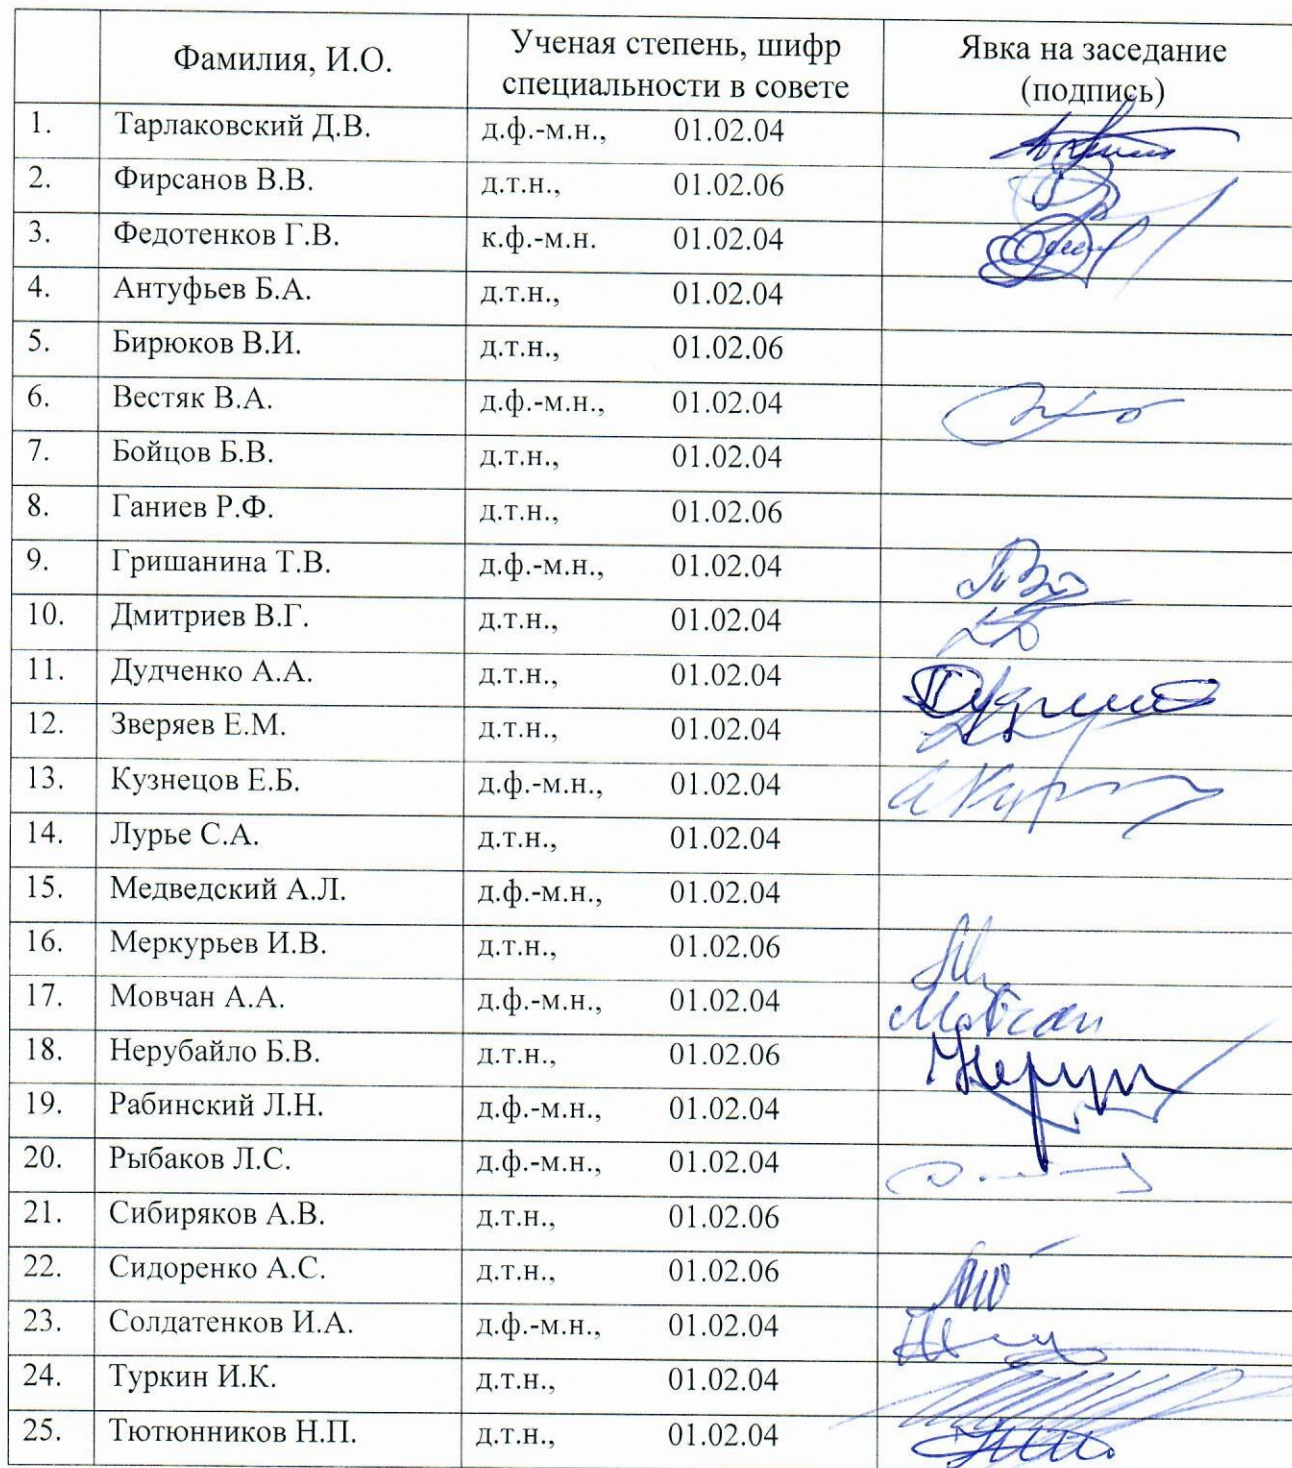 Фамилия, И.О. Ученая степень, шифр специальности в совете Явка на заседание (подпись)
1. Тарлаковский Д.В. д.ф.-м.н., 01.02.04
2. Фирсанов В.В. д.т.н., 01.02.06
3. Федотенков Г.В. к.ф.-м.н. 01.02.04
4. Антуфьев Б.А. д.т.н., 01.02.04
5. Бирюков В.И. д.т.н., 01.02.06
6. Вестяк В.А. д.ф.-м.н., 01.02.04
7. Бойцов Б.В. д.т.н., 01.02.04
8. Ганиев Р.Ф. д.т.н., 01.02.06
9. Гришанина Т.В. д.ф.-м.н., 01.02.04
10. Дмитриев В.Г. д.т.н., 01.02.04
11. Дудченко А.А. д.т.н., 01.02.04
12. Зверяев Е.М. д.т.н., 01.02.04
13. Кузнецов Е.Б. д.ф.-м.н., 01.02.04
14. Лурье С.А. д.т.н., 01.02.04
15. Медведский А.Л. д.ф.-м.н., 01.02.04
16. Меркурьев И.В. д.т.н., 01.02.06
17. Мовчан А.А. д.ф.-м.н., 01.02.04 Мовчан
18. Нерубайло Б.В. д.т.н., 01.02.06
19. Рабинский Л.Н. д.ф.-м.н., 01.02.04
20. Рыбаков Л.С. д.ф.-м.н., 01.02.04
21. Сибиряков А.В. д.т.н., 01.02.06
22. Сидоренко А.С. д.т.н., 01.02.06
23. Солдатенков И.А. д.ф.-м.н., 01.02.04
24. Туркин И.К. д.т.н., 01.02.04
25. Тютюнников Н.П. д.т.н., 01.02.04